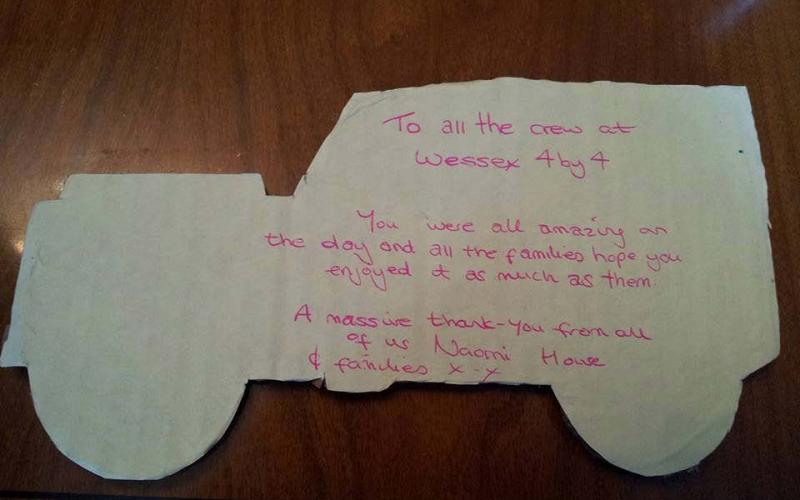 To all the crew at
Wessex 4 by 4
You were all amazing on
the day and all the families hope you
enjoyed it as much as them.
A massive thank-you from all
of us Naomi House
& families x-x